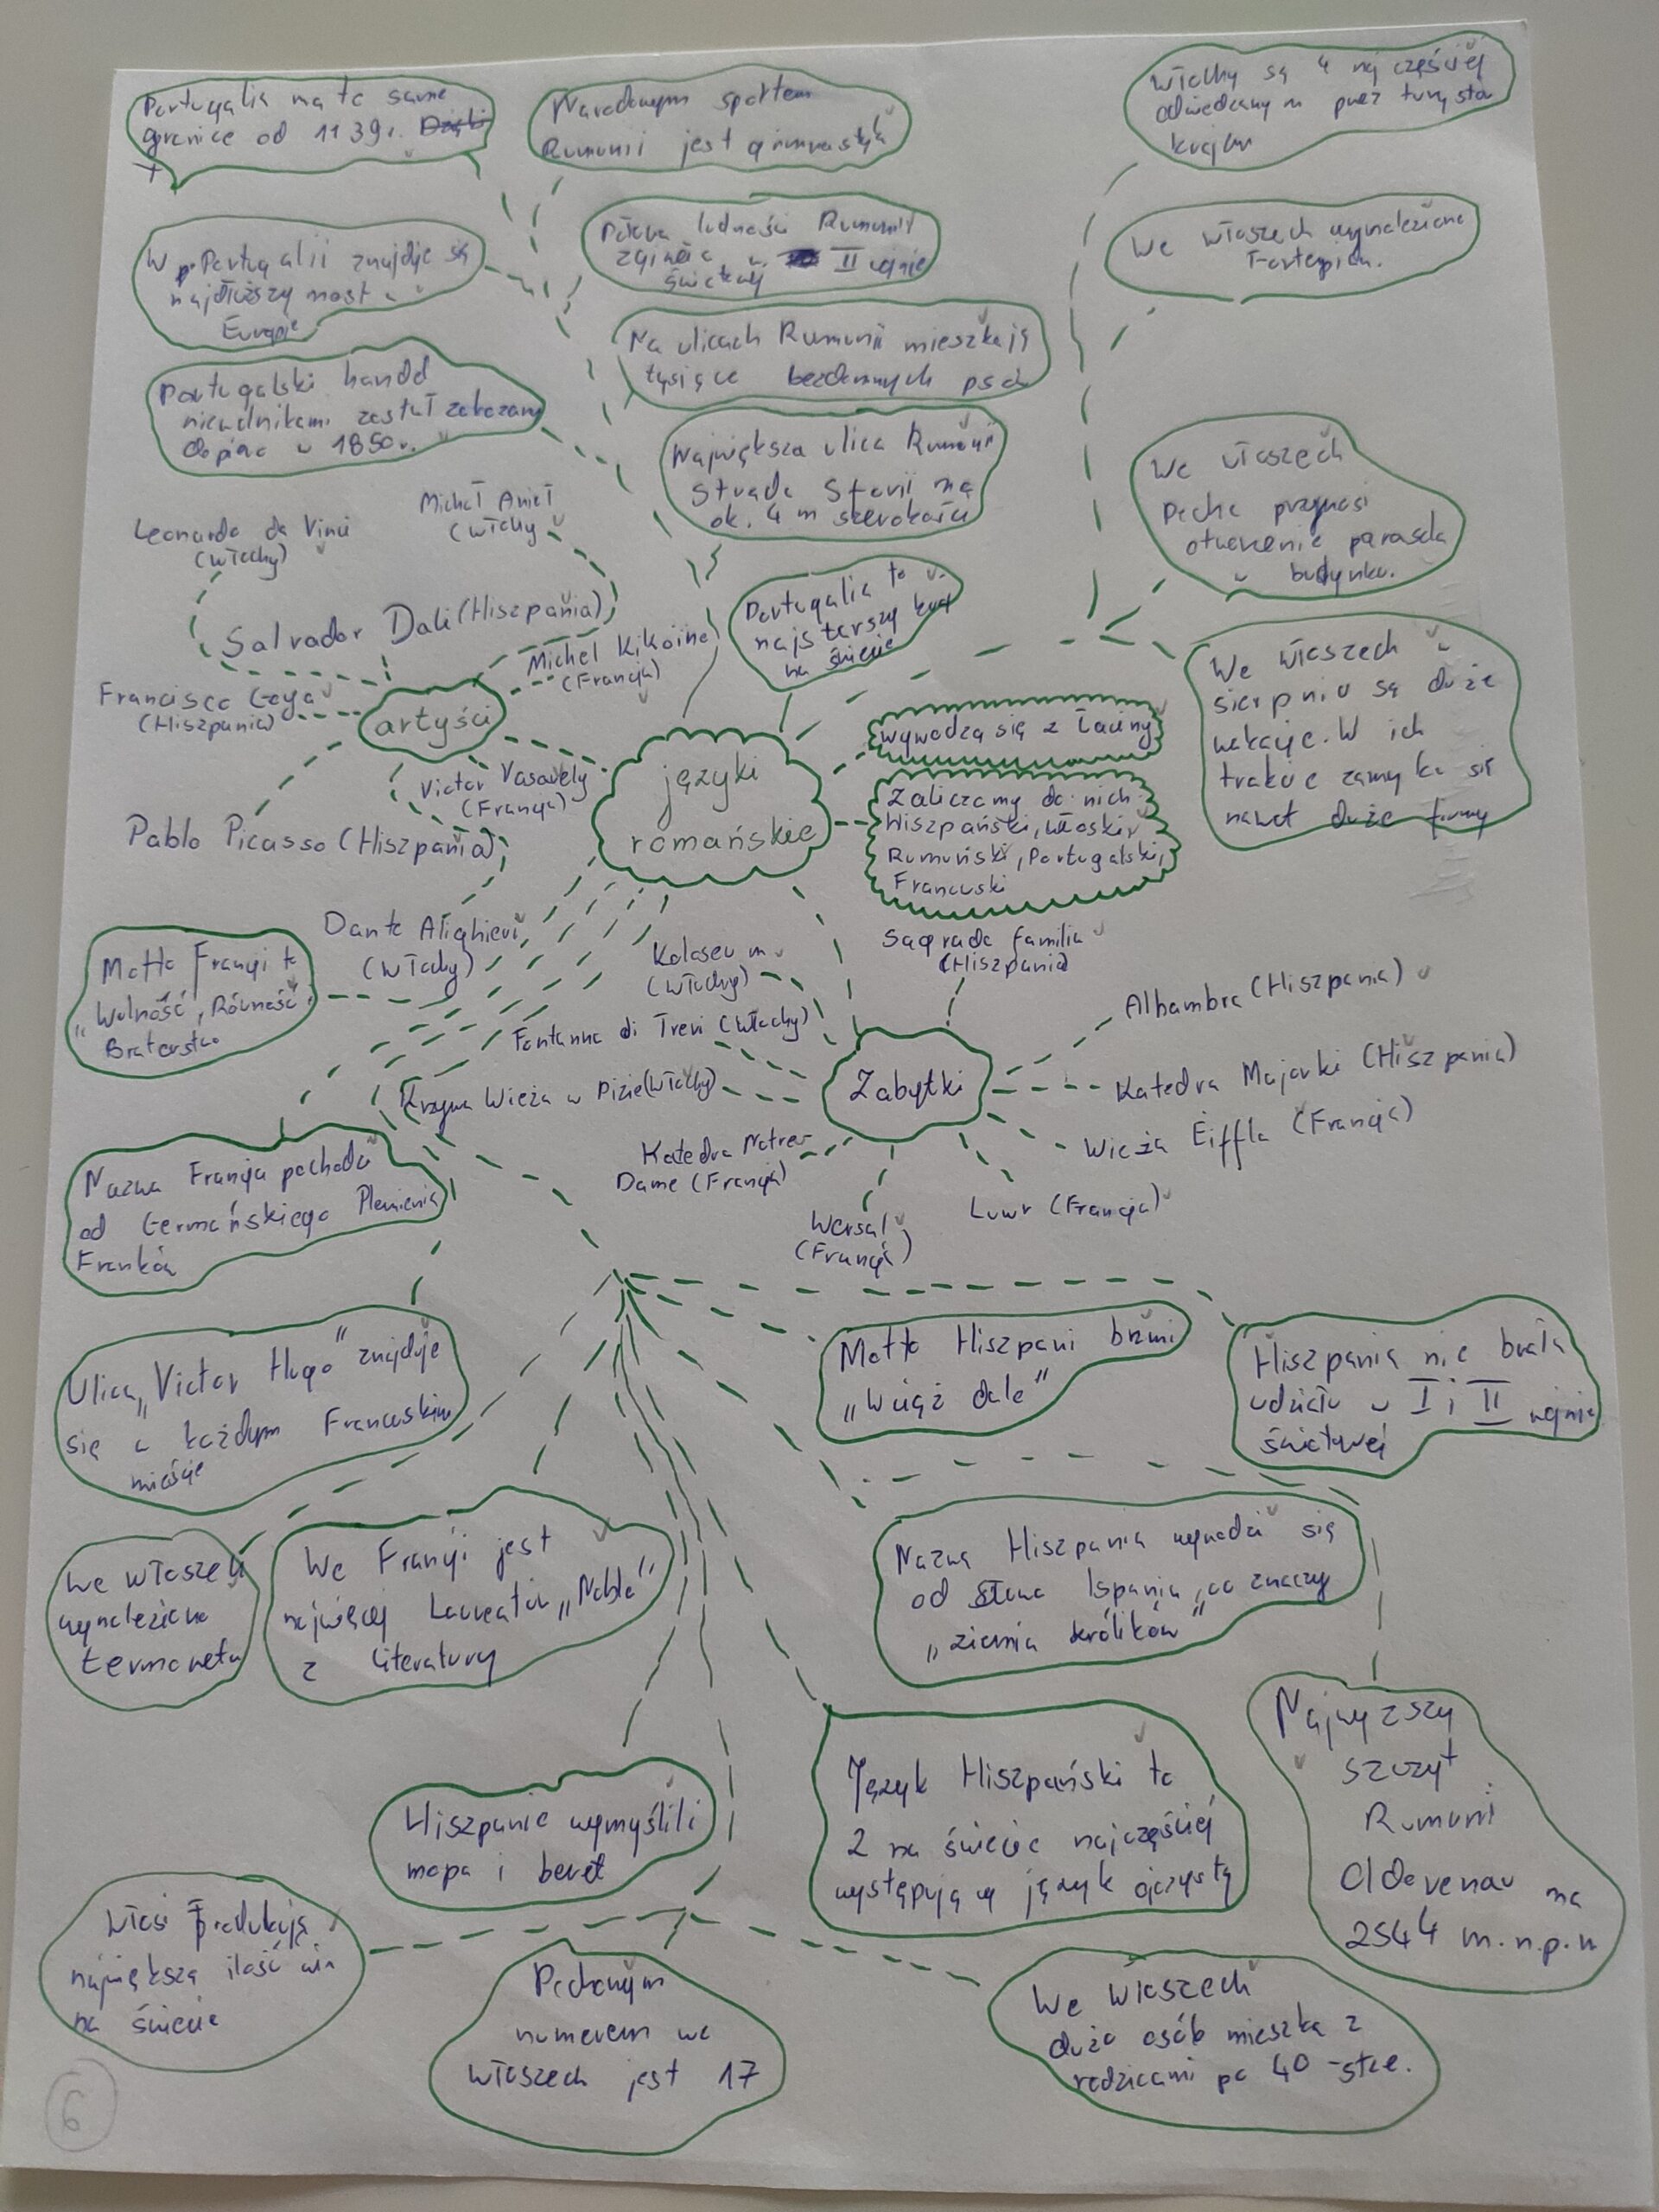 Portugalia ma te same
granice od 1139r.
Narodowym sportem
Rumunii jest gimnastyka
Włochy są 4 najczęściej
odwiedzanym przez turystów
krajem
W Portugalii znajduje się
najdłuższy most w
Europie
Połowa ludności Rumunii
zginęła w II wojnie
światowej
We włoszech wynaleziono
Fortepian.
Na ulicach Rumunii mieszkają
tysiące bezdomnych psów
Portugalski handel
niewolnikami został zakazany
dopiero w 1850r.
Największa ulica Rumunii
Strada Sforii ma
ok. 4 m szerokości
We włoszech
Pecha przynosi
otworzenie parasola
w budynku.
Leonardo da Vinci
(Włochy)
Michał Anioł
(Włochy)
Salvador Dali (Hiszpania)
Michel Kikoine
(Francja)
Francisco Goya
(Hiszpania)
artyści
Victor Vasarely
(Francja)
Pablo Picasso (Hiszpania)
Dante Alighieri
(Włochy)
Portugalia to
najstarszy kraj
na świecie
języki
romańskie
wywodzą się z Łaciny
Zaliczamy do nich
Hiszpański, włoski,
Rumuński, Portugalski,
Francuski
We włoszech w
sierpniu są duże
wakacje. W ich
trakcie zamyka się
nawet duże firmy
Motto Francji to
"Wolność, Równość,
Braterstwo
Koloseum
(Włochy)
Sagrada familia
(Hiszpania)
Fontanna di Trevi (Włochy)
Alhambra (Hiszpania)
Krzywa Wieża w Pizie (Włochy)
Zabytki
Katedra Majorki (Hiszpania)
Katedra Notre-
Dame (Francja)
Wieża Eiffla (Francja)
Wersal
(Francja)
Luwr (Francja)
Nazwa Francja pochodzi
od Germańskiego Plemienia
Franków
Ulica "Victor Hugo" znajduje
się w każdym Francuskim
mieście
Motto Hiszpani brzmi
"Wciąż dale"
Hiszpania nie brała
udziału w I i II wojnie
światowej
We włoszech
wynaleziono
termometr
We Francji jest
najwięcej Laureatów "Nobla"
z Literatury
Nazwa Hiszpania wywodzi się
od słowa Ispania, co znaczy
"ziemia królików"
Hiszpanie wymyślili
mopa i beret
Język Hiszpański to
2 na świecie najczęściej
występujący język ojczysty
Najwyższy
szczyt
Rumuni
ma
2544 m.n.p.m
Włosi Produkują
największą ilość win
na świecie
Pechowym
numerem we
włoszech jest 17
We włoszech
dużo osób mieszka z
rodzicami po 40-stce.
6